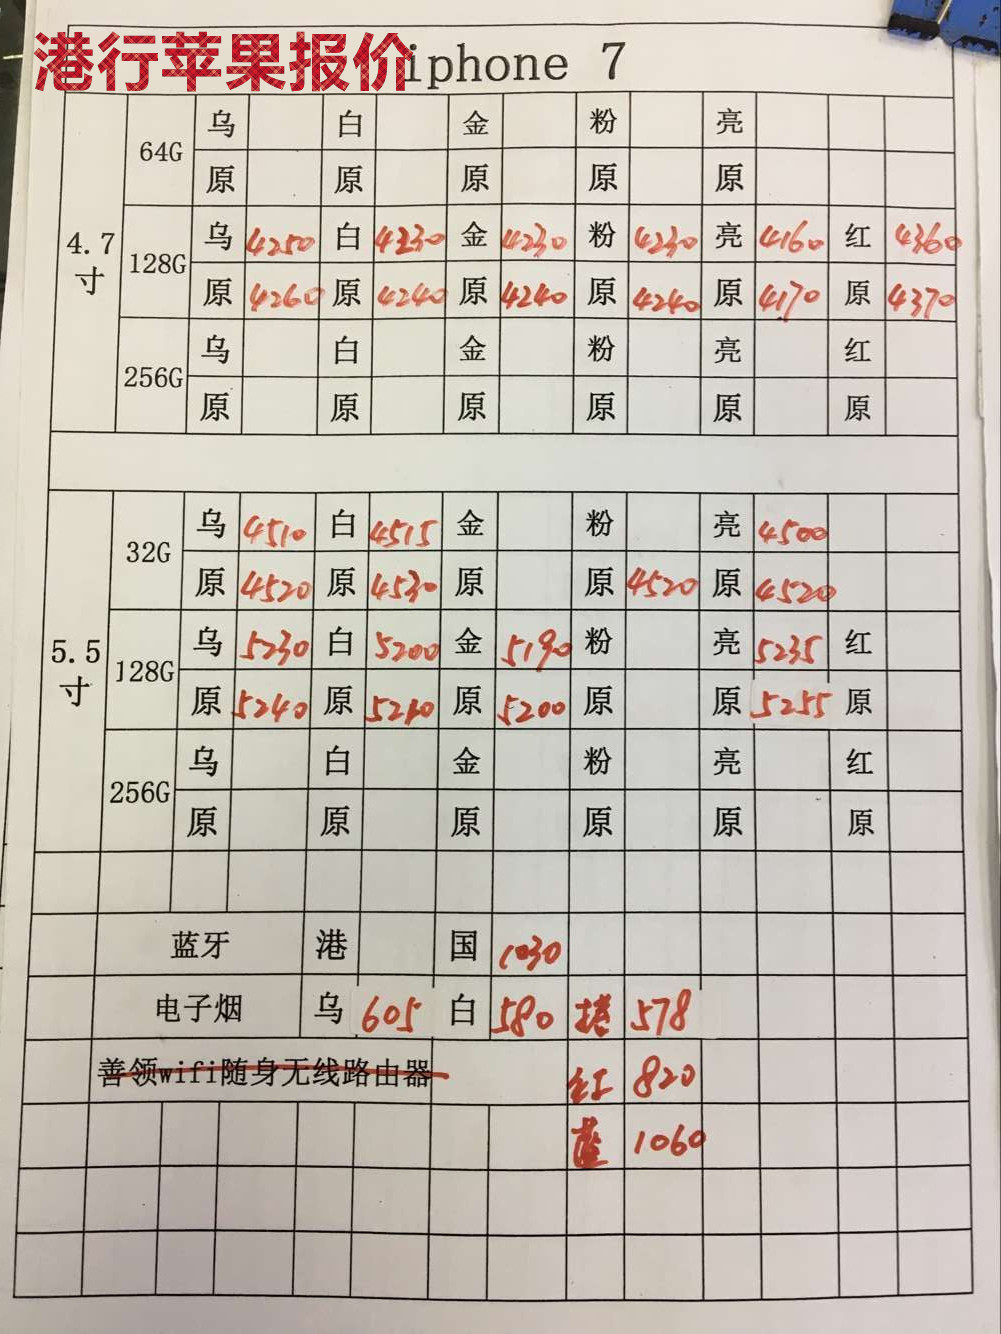 港行苹果报价 iphone 7
64G 乌 白 金 粉 亮
原 原 原 原 原
4.7寸 128G 乌 4250 白 4230 金 4230 粉 4230 亮 4160 红 4360
原 4260 原 4240 原 4240 原 4240 原 4170 原 4370
256G 乌 白 金 粉 亮 红
原 原 原 原 原 原
32G 乌 4510 白 4515 金 粉 亮 4500
原 4520 原 4530 原 原 4520 原 4520
5.5寸 128G 乌 5230 白 5200 金 5190 粉 亮 5235 红
原 5240 原 5210 原 5200 原 原 5255 原
256G 乌 白 金 粉 亮 红
原 原 原 原 原 原
蓝牙 港 国 1030
电子烟 乌 605 白 580 578
善领wifi随身无线路由器 红 820
蓝 1060